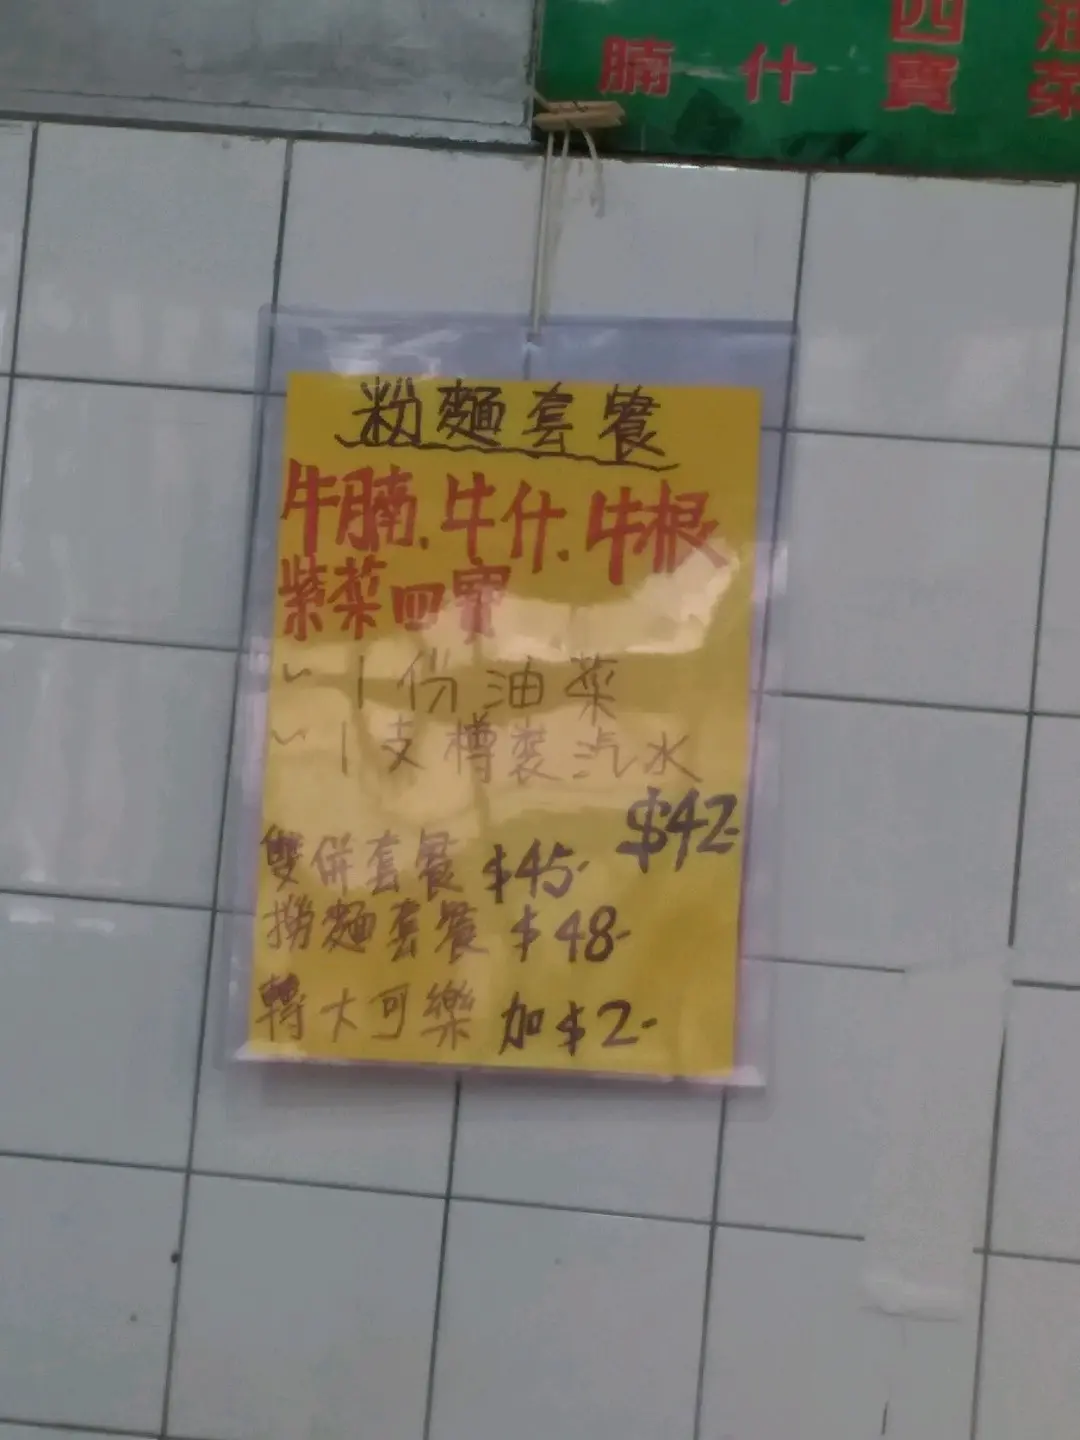 四 油
腩 什 寶 菜
粉麵套餐
牛腩.牛什.牛根
紫菜四寶
~ 1份油菜
~ 1支樽裝汽水
$42-
雙併套餐 $45-
撈麵套餐 $48-
轉大可樂 加$2-